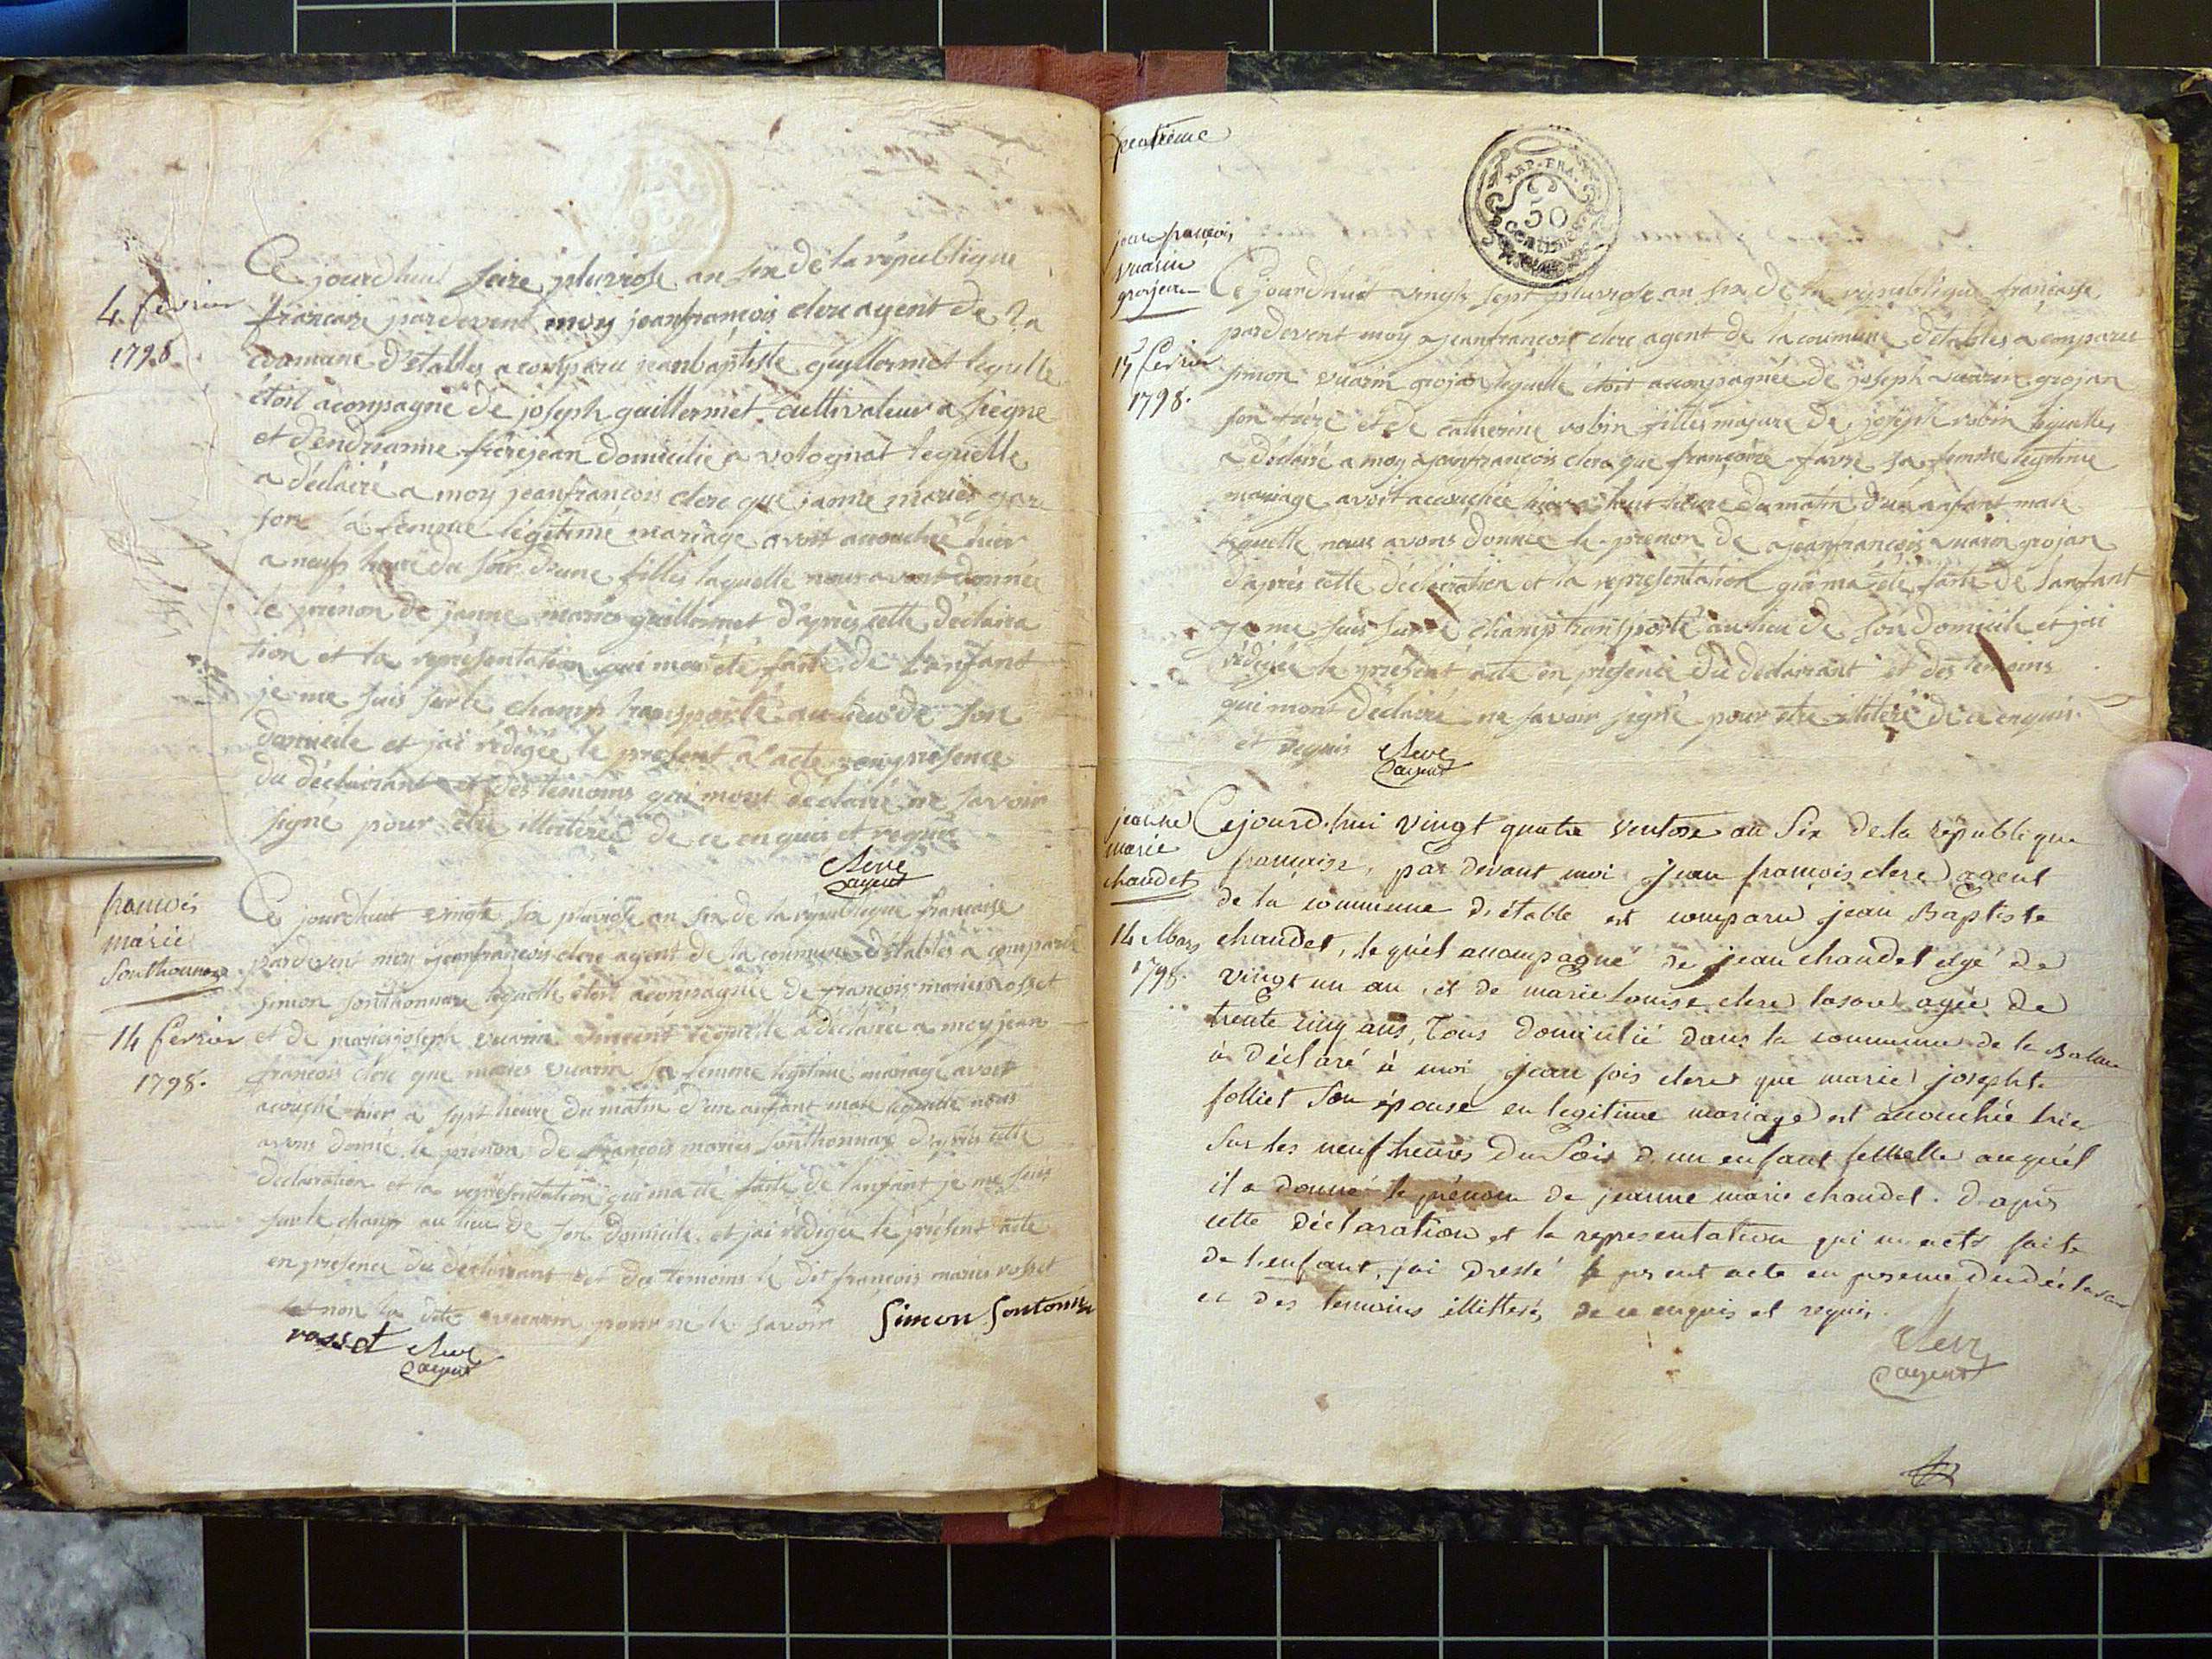 4 février
1798.
Ce jourdhuit seize pluviose an six de la république
francaise pardevent moy jeanfrançois clerc agent de la
commune d'étables a comparu jeanbaptiste guillermet lequelle
étoit acompagné de joseph guillermet cultivateur a
et d'endrianne frérejean domicilie a volognat lequelle
a déclairé a moy jeanfrançois clerc que janne maries
sa femme légitime mariage avoit acouchée hier
a neufs heure du soir d'une filles laquelle nous avons donnée
le prénon de janne maries guillermet d'après cette déclaira
tion et la représentation qui ma été faite de l'enfant
je me suis surle champ transporté au lieu de son
domicile et jai rédigée le present acte en présence
du déclairant et des temoins qui mont déclairé ne savoir
signé pour etre illiteree de ce enquis et requis
clerc
agent
francois
marie
Sonthonnax
14 février
1798.
Ce jourdhuit vingts six pluviose an six de la république francaise
pardevent moy jeanfrançois clerc agent de la commune d'étables a comparu
simon sonthonnax lequelle étoit acompagnée de françois maries rosset
et de mariejoseph vuarin vincent lequelle a déclairée a moy jean
francois clerc que maries vuarin sa femme légitime mariage avoit
acouché hier a sept heure du matin d'un anfant male lequelle nous
avons donné le prénon de françois maries sonthonnax d'après cette
déclaration et la représentation qui ma été faite de l'anfant je me suis
surle champ au lieu de son domicile et jai rédigée le présent acte
en presence du déclairant et des temoins le dit françois maries rosset
et non la dite vuarin pour ne le savoir Simon Sontonna
rosset clerc
agent
jean françois
vuarin
grosjean
15 février
1798.
REP. FRA.
50
Centimes
Ce jourdhuit vingts sept pluviose an six de la république française
pardevent moy jeanfrançois clerc agent de la commune d'étables a comparu
simon vuarin grojan lequelle étoit acompagnée de joseph vuarin grojan
son frère et de catherine robin filles majure de joseph robin lequelles
a déclairé a moy jeanfrancois clerc que françoise favre sa femme légitime
mariage avoit acouchée hier a huit heure du matin d'un anfant male
lequelle nous avons donnée le prenon de jeanfrançois vuarin grojan
d'après cette déclairation et la représentation qui ma été faite de l'anfant
je me suis sur le champ transporté au lieu de son domicile et jai
rédigée le present acte en présence du déclairant et des temoins
qui mont déclairé ne savoir signé pour etre illiteré de ce enquis
et requis clerc
agent
jeanne
marie
chaudet
14 Mars
1798.
Cejourd'hui vingt quatre ventose an Six de la république
française, par devant moi jean françois clerc agent
de la commune d'étable est comparu jean Baptiste
chaudet, lequel acompagné de jean chaudet agé de
vingt un an, et de marie Louise clerc agée de
trente cinq ans, tous domicilié dans la commune de la Balme
à déclaré à moi jean fois clerc que marie josephte
folliet Son épouse en legitime mariage est acouchée hier
Sur les neuf heures du Soir d'un enfant femelle auquél
il a donné le prénom de jeanne marie chaudet. d'après
cette déclaration et la representation qui m'a eté faite
de l'enfant, j'ai dressé le present acte en presence du déclarant
et des temoins illitterés de ce enquis et requis.
clerc
agent